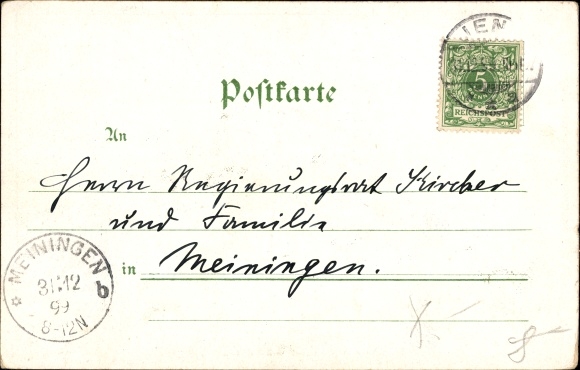 Postkarte
5
REICHSPOST
An
Herrn Regierungsrat Kircher
und Familie
in Meiningen.
MEININGEN
31.12
99
8-12N
b